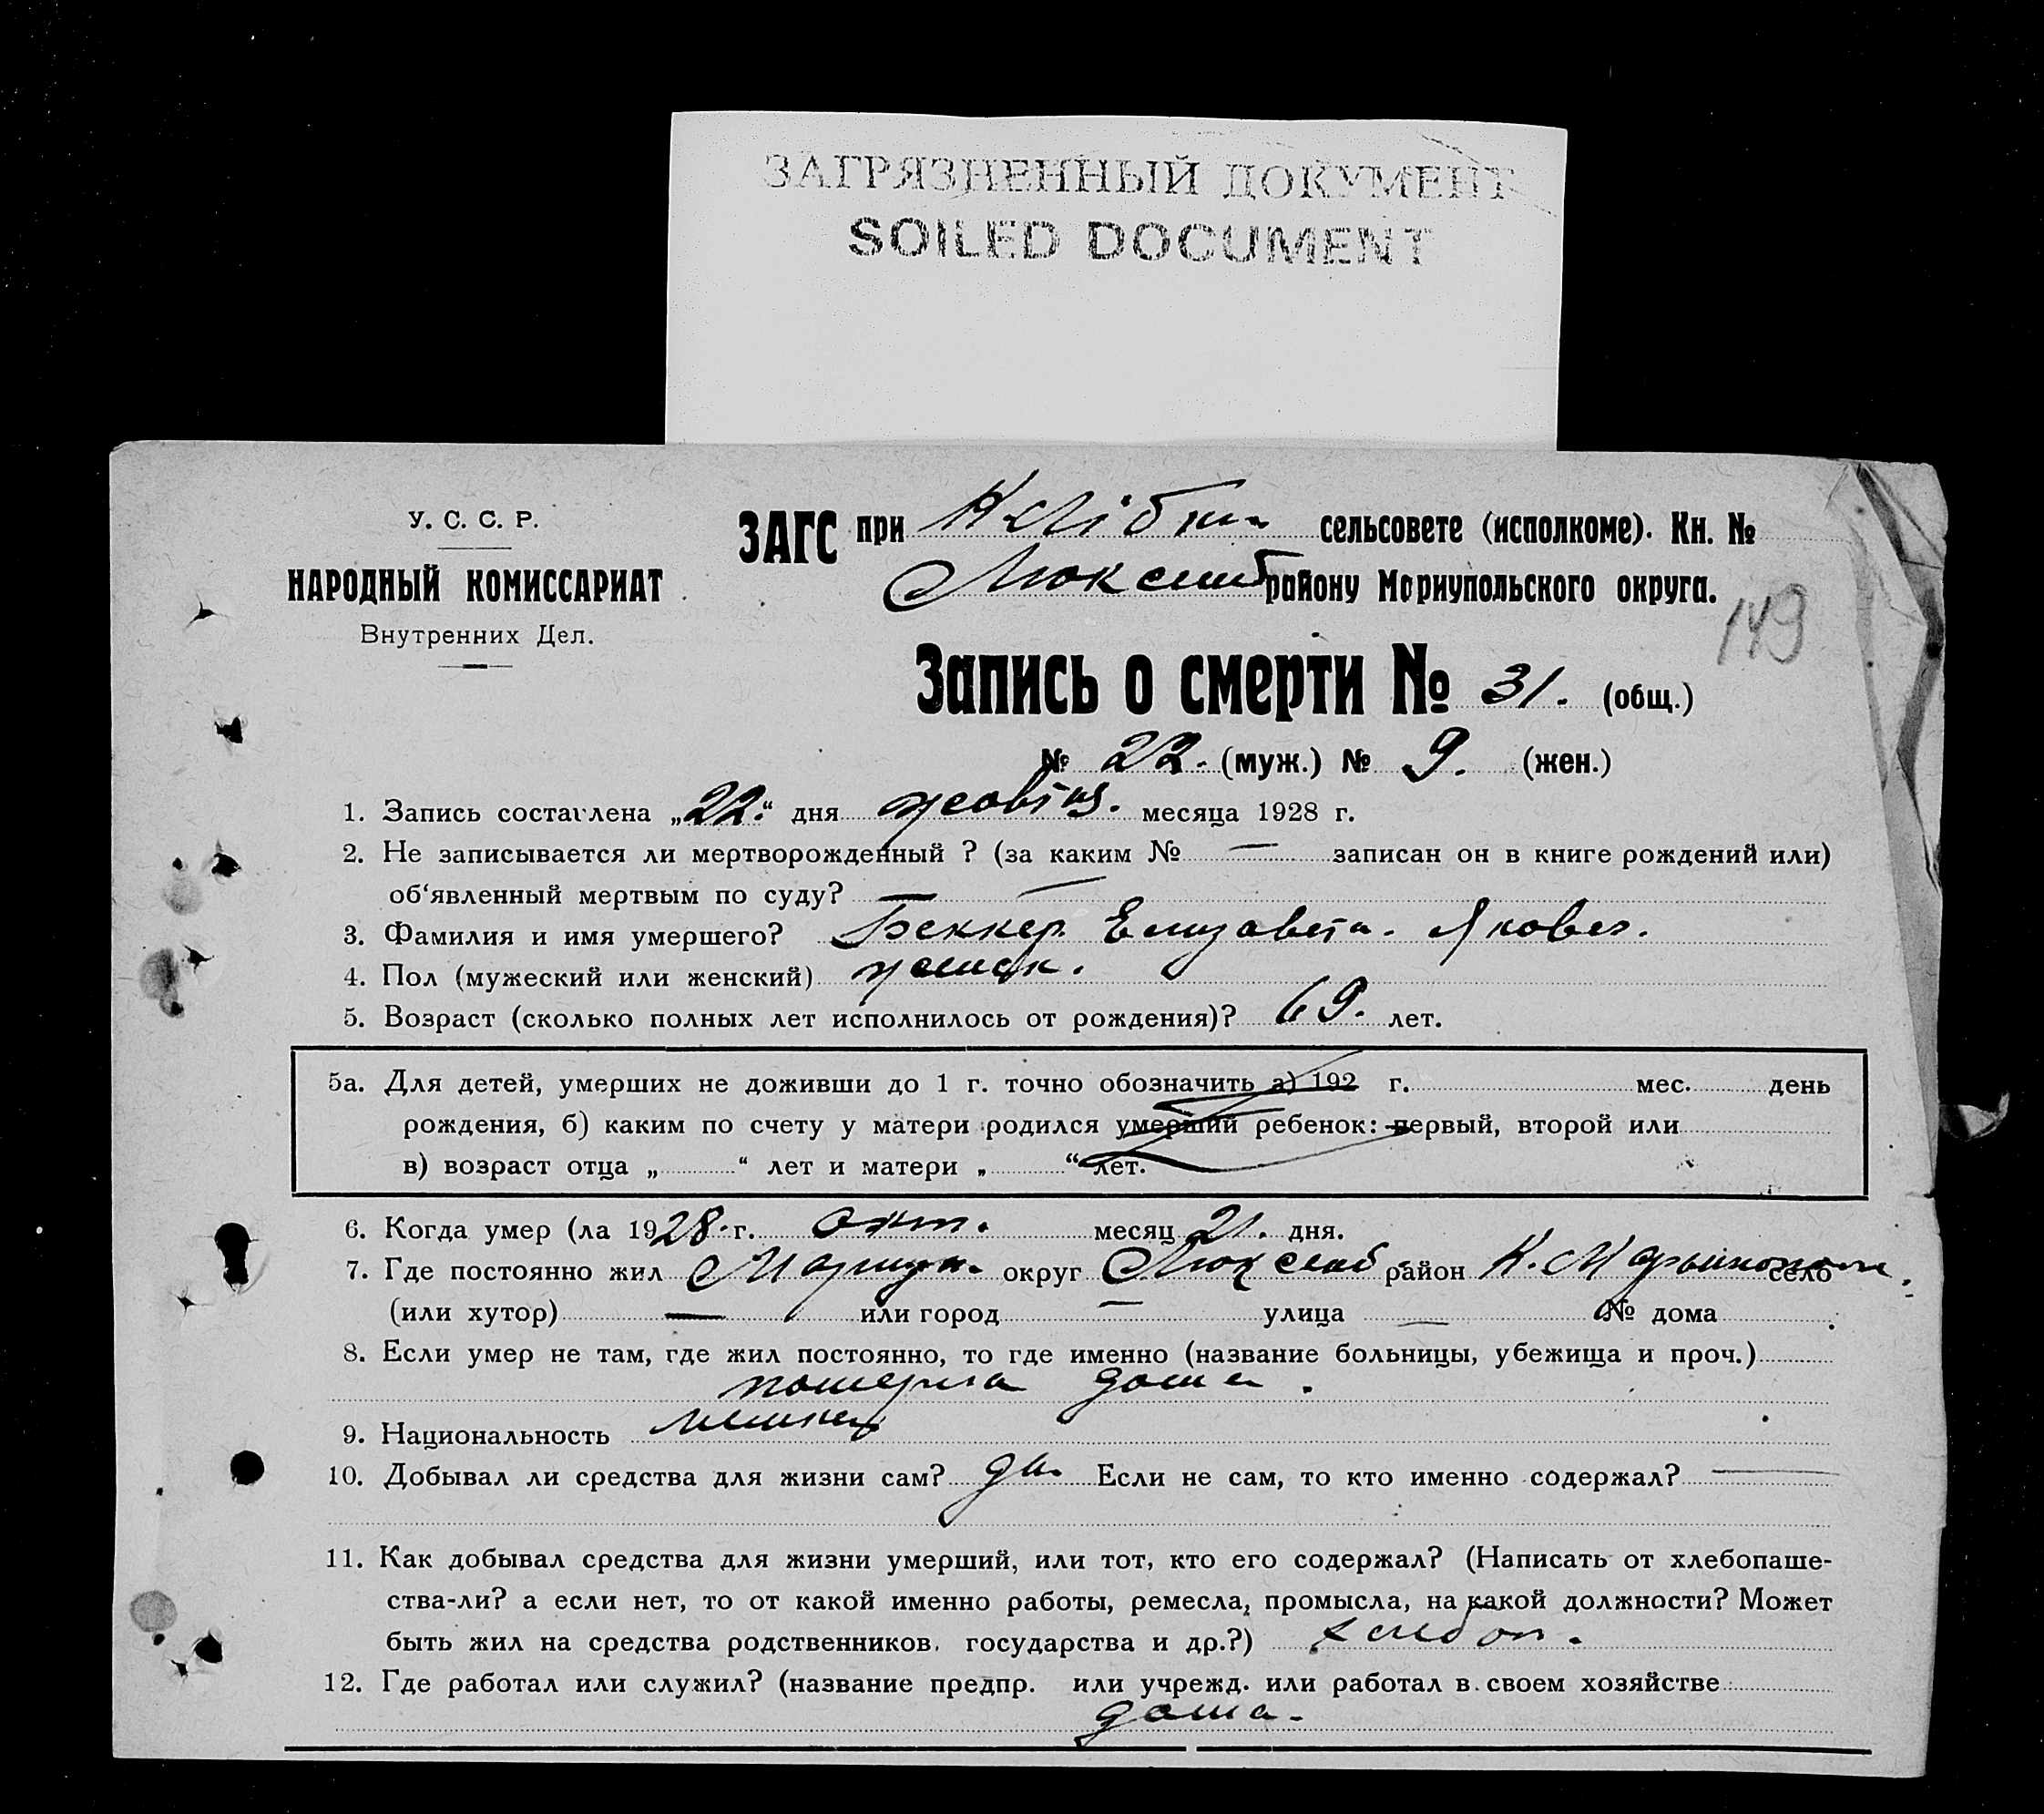 ЗАГРЯЗНЕННЫЙ ДОКУМЕНТ
SOILED DOCUMENT
У. С. С. Р.
НАРОДНЫЙ КОМИССАРИАТ
Внутренних Дел.
ЗАГС при сельсовете (исполкоме). Кн. №
Люксемб району Мариупольского округа.
149
Запись о смерти № 31. (общ.)
№ 22. (муж.) № 9. (жен.)
1. Запись составлена „22.“ дня жовтня. месяца 1928 г.
2. Не записывается ли мертворожденный ? (за каким № — записан он в книге рождений или)
об‘явленный мертвым по суду? —
3. Фамилия и имя умершего? Беккер Елизавета. Яковл.
4. Пол (мужеский или женский) женск.
5. Возраст (сколько полных лет исполнилось от рождения)? 69. лет.
5а. Для детей, умерших не доживши до 1 г. точно обозначить а) 192 г. мес. день
рождения, б) каким по счету у матери родился умерший ребенок: первый, второй или
в) возраст отца „ “ лет и матери „ “ лет.
6. Когда умер (ла 1928. г. окт. месяц 21. дня.
7. Где постоянно жил Мариуп. округ Люксемб район К. село
(или хутор) — или город — улица — № дома
8. Если умер не там, где жил постоянно, то где именно (название больницы, убежища и проч.)
померла дома.
9. Национальность
10. Добывал ли средства для жизни сам? да. Если не сам, то кто именно содержал? —
11. Как добывал средства для жизни умерший, или тот, кто его содержал? (Написать от хлебопаше-
ства-ли? а если нет, то от какой именно работы, ремесла, промысла, на какой должности? Может
быть жил на средства родственников, государства и др.?) хлебоп.
12. Где работал или служил? (название предпр. или учрежд. или работал в своем хозяйстве
дома.